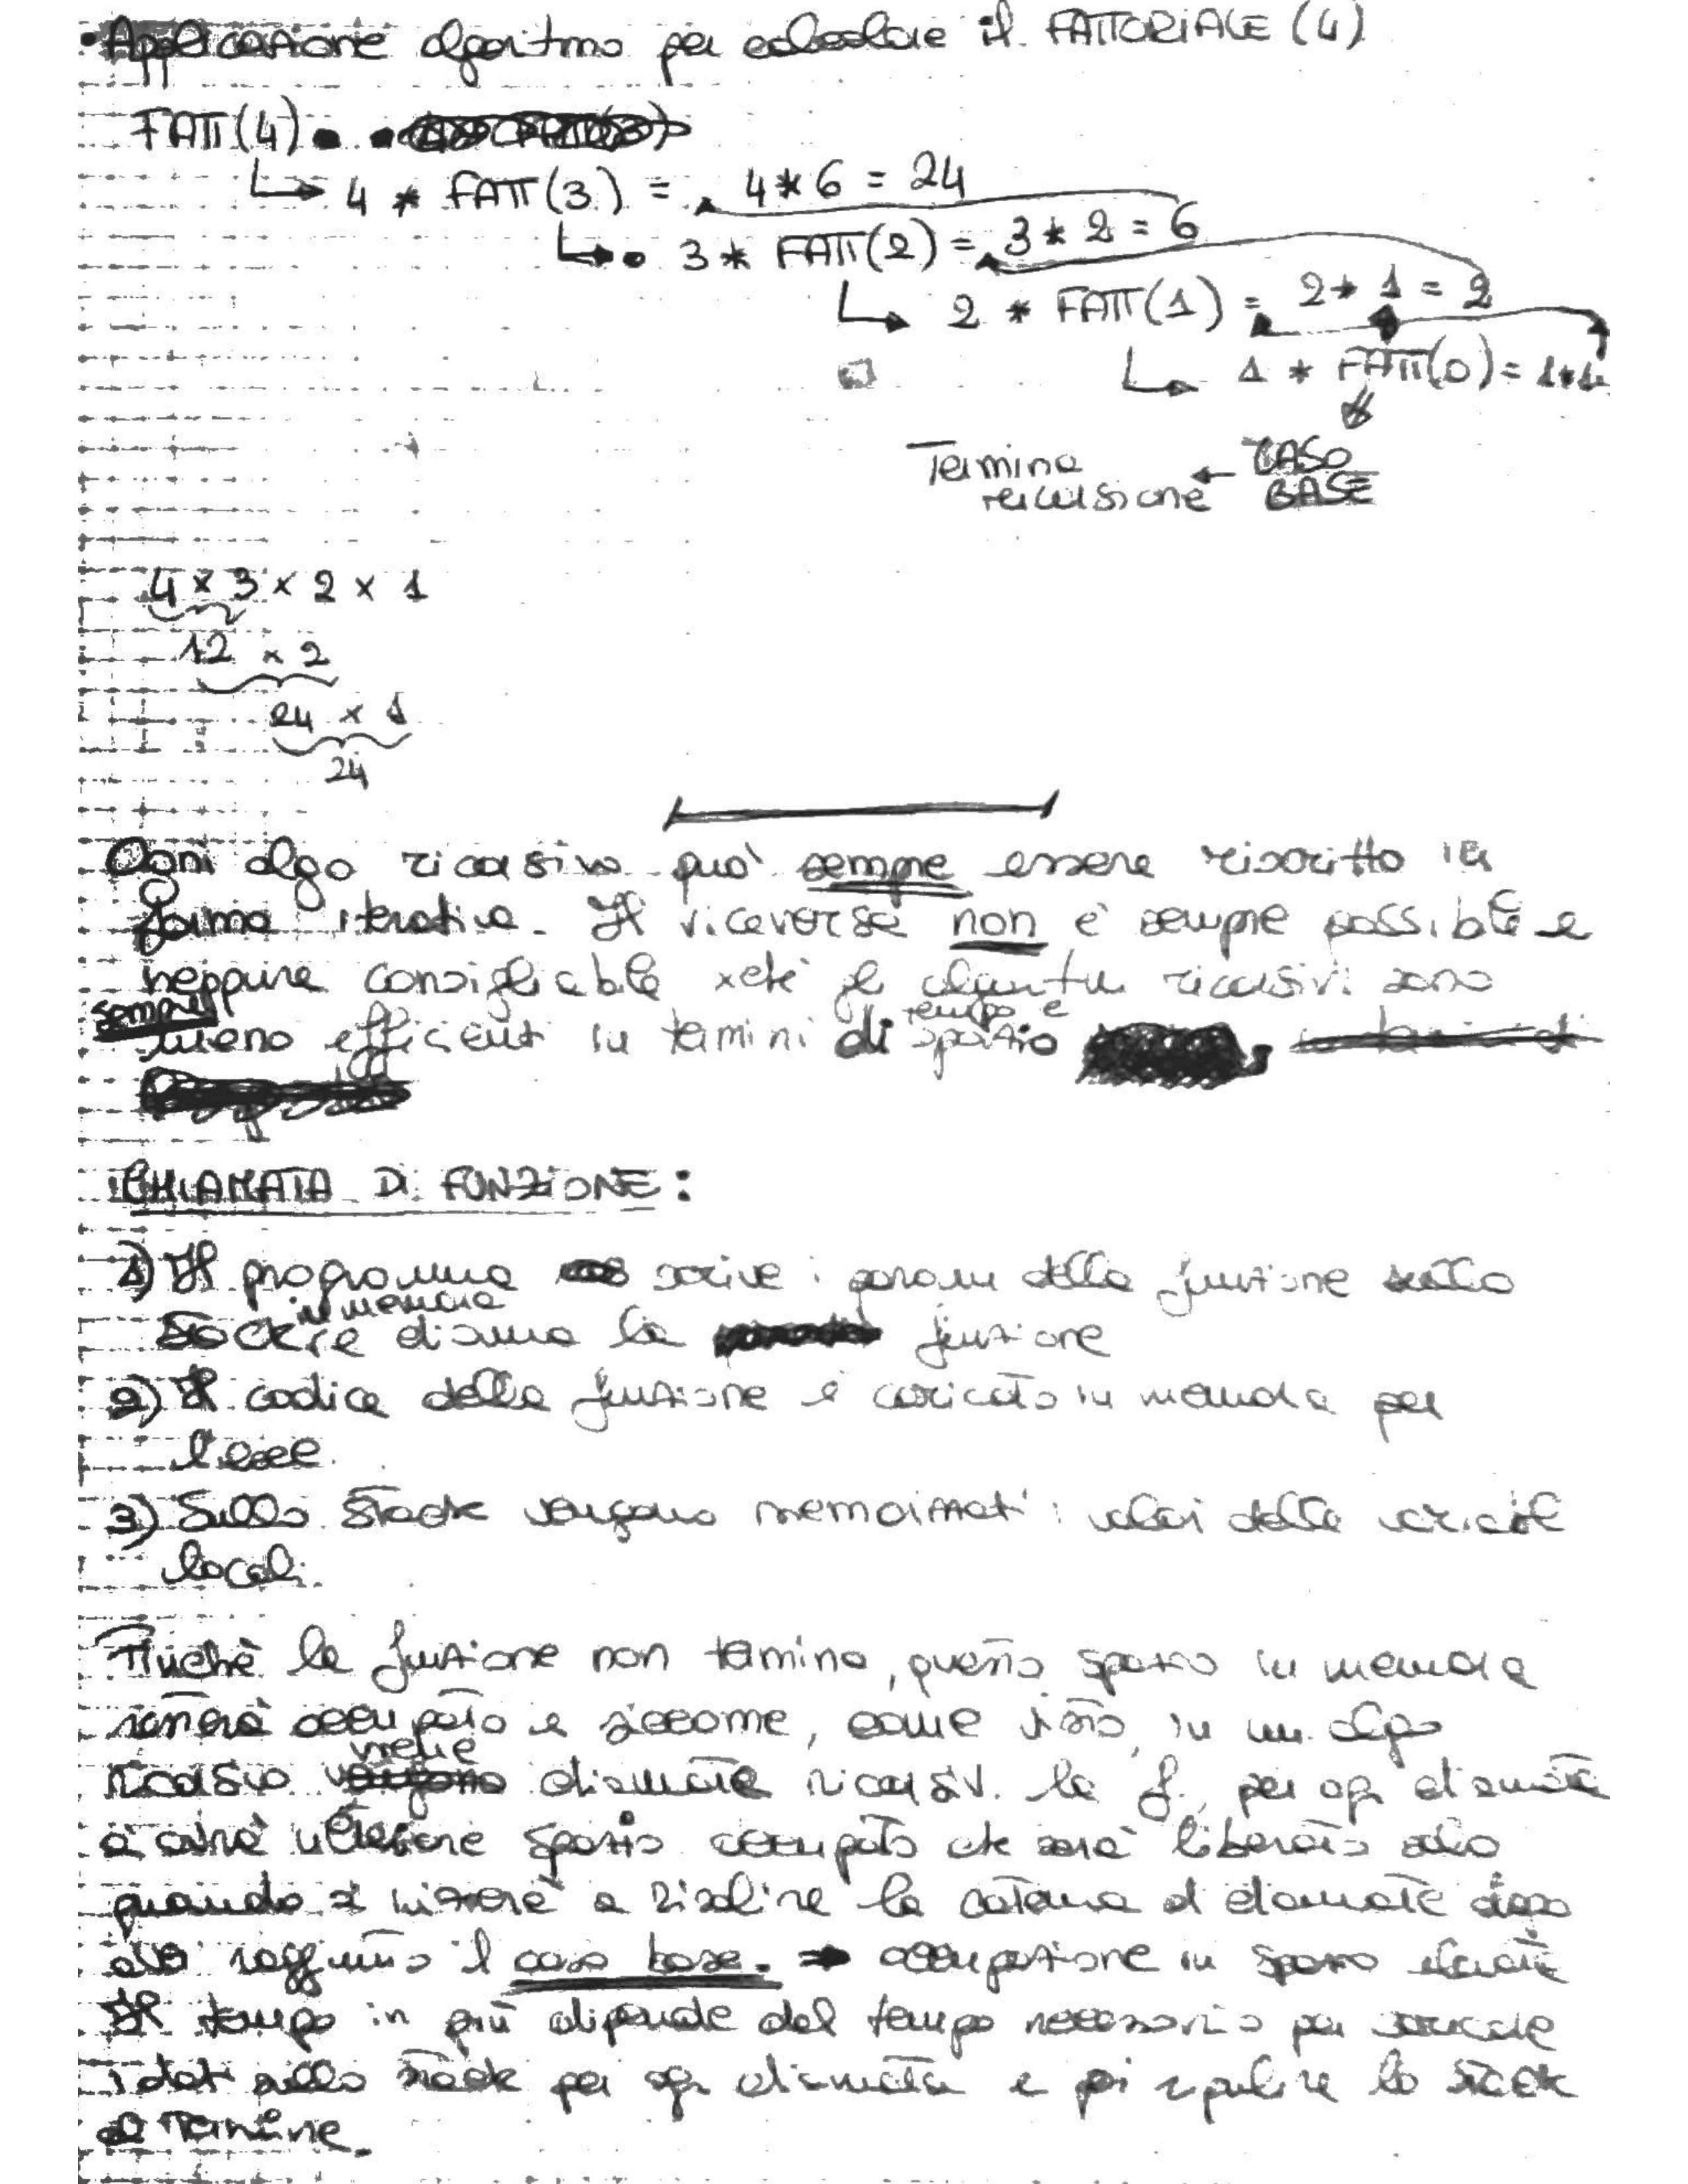 • Applicazione algoritmo per calcolare il FATTORIALE (4)
FATT(4)
4 * FATT(3) = 4*6 = 24
3 * FATT(2) = 3*2 = 6
2 * FATT(1) = 2* 1 = 2
1 * FATT(0) = 1*1
Termina ← CASO
ricorsione BASE
4 x 3 x 2 x 1
12 x 2
24 x 1
24
Ogni algo ricorsivo può sempre essere riscritto in
forma iterativa. Il viceversa non è sempre possibile e
neppure consigliabile xché gli ricorsivi sono
sempre
tempo e
meno efficienti in termini di spazio
CHIAMATA DI FUNZIONE:
1) Il programma scrive i param della funzione sullo
in memoria
Stack e chiama la funzione
2) Il codice della funzione è caricato in memoria per
l'esec.
3) Sullo Stack vengono memorizzati i valori delle variabili
locali.
Finchè la funzione non termina, questo spazio in memoria
resterà occupato e siccome, come visto, in un algo
viene
ricorsivo chiamata ricorsiv. la f., per ogni chiamata
ci sarà ulteriore spazio occupato che sarà liberato solo
quando si inizierà a risalire la catena di chiamate dopo
aver raggiunto il caso base. → occupazione in spazio elevata
Il tempo in più dipende dal tempo necessario per caricare
i dati sullo stack per ogni chiamata e poi ripulire lo stack
al termine.